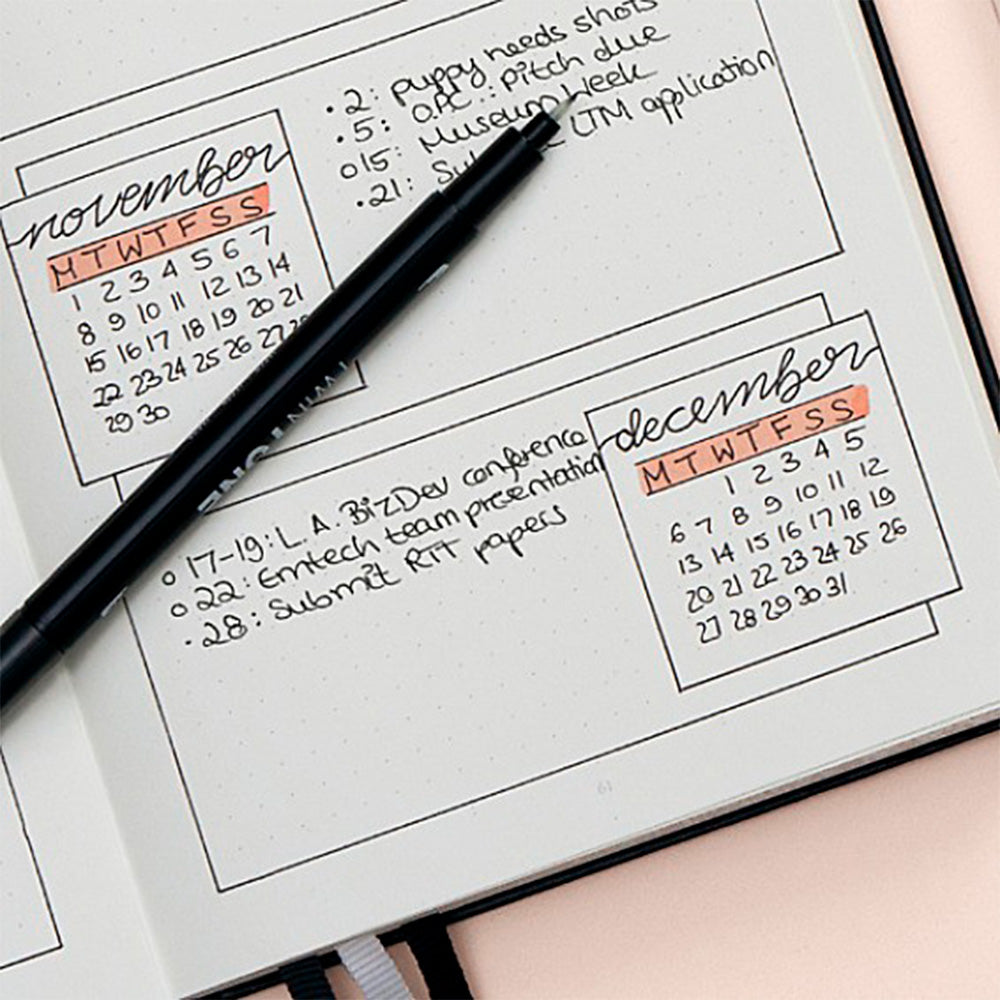 • 2: puppy needs shots
• 5: OPC.: Pitch due
o 15: Museum Week
• 21: LTM application
november
M T W T F S S
1 2 3 4 5 6 7
8 9 10 11 12 13 14
15 16 17 18 19 20 21
22 23 24 25 26 27 28
29 30
TWINTONE
december
M T W T F S S
1 2 3 4 5
6 7 8 9 10 11 12
13 14 15 16 17 18 19
20 21 22 23 24 25 26
27 28 29 30 31
o 17-19: L.A. BizDev conference
o 22: Emtech team presentation
• 28: Submit RTT papers
61